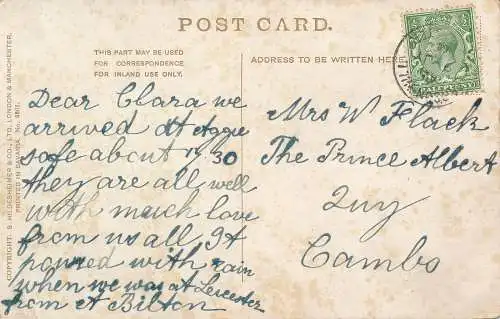 POST CARD.
THIS PART MAY BE USED
FOR CORRESPONDENCE
FOR INLAND USE ONLY.
ADDRESS TO BE WRITTEN HERE
COPYRIGHT. S. HILDESHEIMER & CO., LTD. LONDON & MANCHESTER.
PRINTED IN BAVARIA. No.
Dear Clara we
arrived at Aggie
safe about 17.30
they are all well
with much love
from us all It
poured with rain
when we was at Leicester
from A Bilton
Mrs W Flack
The Prince Albert
Quy
Cambs